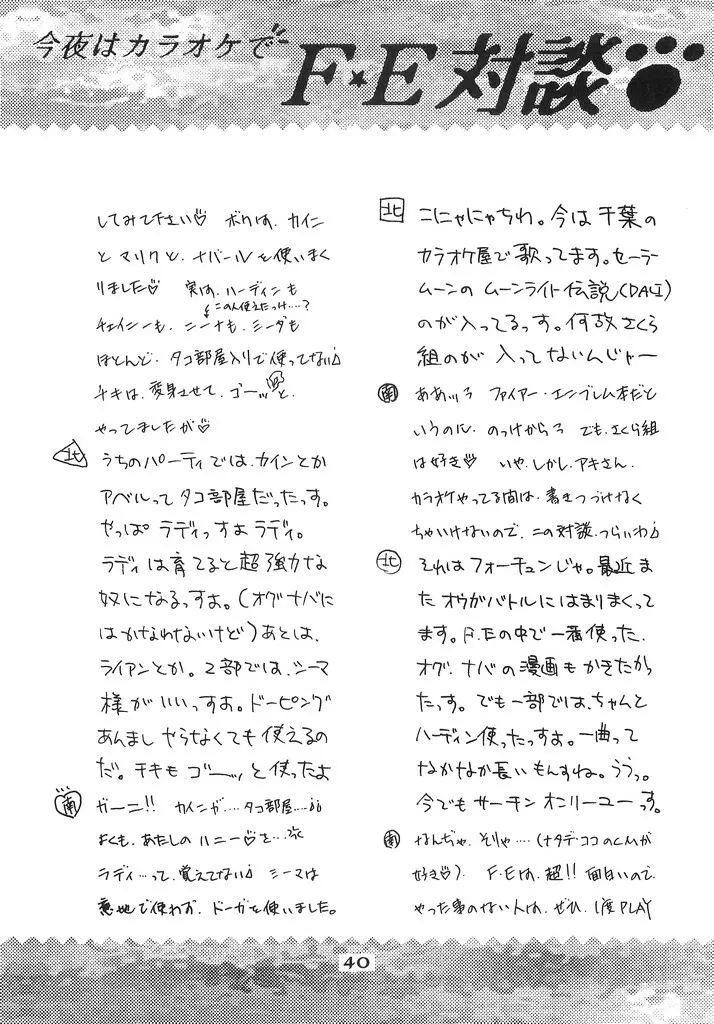 今夜はカラオケで
F★E対談
北 こにゃにゃちわ。今は千葉の
カラオケ屋で歌ってます。セーラー
ムーンの ムーンライト伝説(DALI)
のが入ってるっす。何故さくら
組のが 入ってないんじゃー
南 ああッろ ファイアー・エンブレム本だと
いうのに、のっけからろ でも、さくら組
は好き♡ いや、しかし、アキさん、
カラオケやってる間は、書きつづけなく
ちゃいけないので、この対談、つらいわ♪
北 それはフォーチュンじゃ。最近ま
たオウガバトルにはまりまくって
ます。F.Eの中で一番使った、
オグ、ナバの漫画もかきたかっ
たっす。でも一部では、ちゃんと
ハーディン使ったっすよ。一曲って
なかなか長いもんすね。ううっ。
今でもサーチン オンリーユーっす。
南 なんぢゃ、そりゃ‥‥(ナタデ・ココのCMが
好き♡)。 F・Eは、超!! 面白いので、
やった事のない人は、ぜひ、1度PLAY
してみて下さい♡ ボクは、カイン
と マリクと、ナバールを使いまく
りました♡ 実は、ハーディンも
この人使えたっけ‥‥?
チェイニーも、ニーナも、ミーダも
ほとんど、タコ部屋入りで使ってない♪
チキは、変身させて、ゴーッと、
やってましたが♡
北 うちのパーティでは、カインとか
アベルって タコ部屋だったっす。
やっぱ ラディっすよラディ。
ラディは育てると超強力な
奴になるっすよ。(オグナバに
はかなわないけど)あとは、
ライアンとか。2部では、シーマ
様がいいっすよ。ドーピング
あんまし やらなくても 使えるの
だ。チキも ゴーッ と使ったよ
南 ガーン!! カインが‥‥タコ部屋‥‥
よくも、あたしの ハニー♡を‥‥
ラディ‥‥って、覚えてない♪ シーマは
意地で使わず、ドーガを使いました。
40